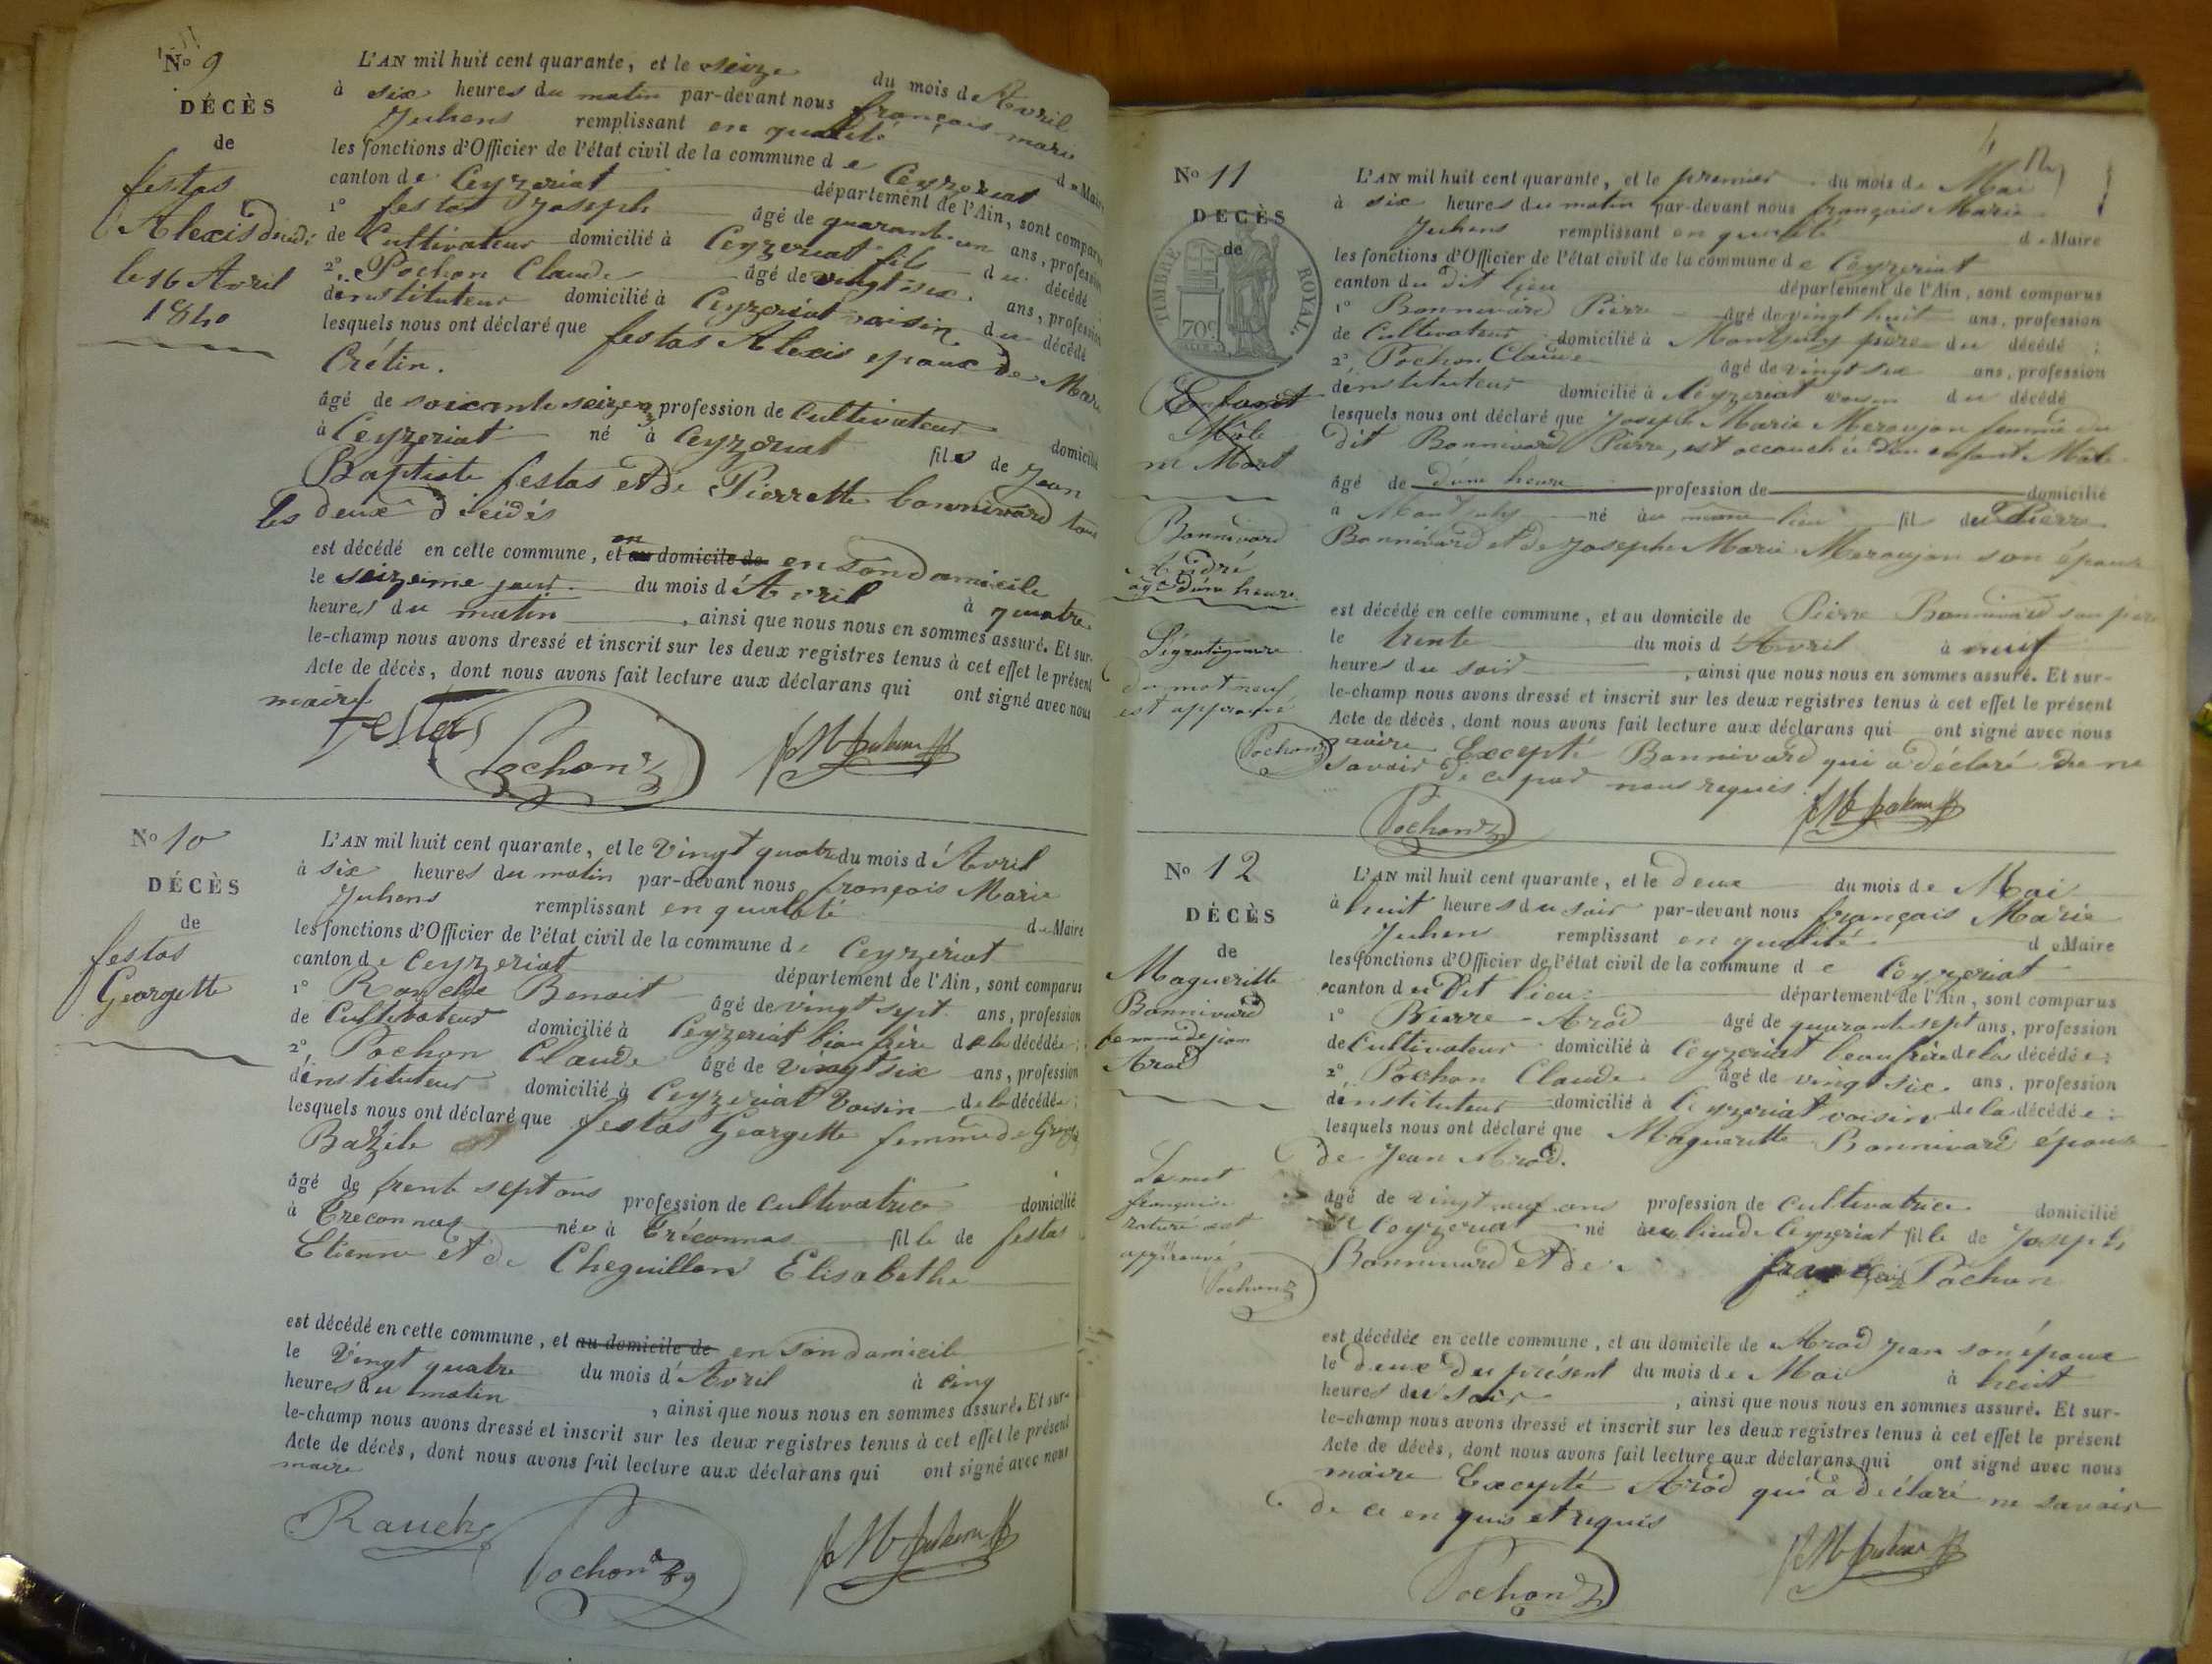 No 9
DÉCÈS
de
festas
Alexis
le 16 Avril
1840
L'AN mil huit cent quarante, et le seize du mois d'Avril
à six heures du matin par-devant nous françois marie
Juhens remplissant en qualité de Maire
les fonctions d'Officier de l'état civil de la commune de Ceyzeriat
canton de Ceyzeriat département de l'Ain, sont comparus
1º festas Joseph âgé de quarante un ans, profession
de Cultivateur domicilié à Ceyzeriat fils du décédé
2º Pochon Claude âgé de vingt six ans, profession
d'instituteur domicilié à Ceyzeriat voisin du décédé
lesquels nous ont déclaré que festas Alexis epoux de Marie
Crétin.
âgé de soixante seize profession de Cultivateur domicilié
à Ceyzeriat né à Ceyzeriat fils de Jean
Baptiste festas et de Pierrette bonnivard tous
les deux décédés
est décédé en cette commune, et au domicile de en son domicile
le seizieme jour du mois d'Avril à quatre
heures du matin, ainsi que nous nous en sommes assuré. Et sur-
le-champ nous avons dressé et inscrit sur les deux registres tenus à cet effet le présent
Acte de décès, dont nous avons fait lecture aux déclarans qui ont signé avec nous
maire
festas Pochon
No 10
DÉCÈS
de
festas
Georgette
L'AN mil huit cent quarante, et le Vingt quatre du mois d'Avril
à six heures du matin par-devant nous françois Marie
Juhens remplissant en qualité de Maire
les fonctions d'Officier de l'état civil de la commune de Ceyzeriat
canton de Ceyzeriat département de l'Ain, sont comparus
1º Benoit âgé de vingt sept ans, profession
de Cultivateur domicilié à Ceyzeriat beau frère de la décédée;
2º Pochon Claude âgé de vingt six ans, profession
d'instituteur domicilié à Ceyzeriat Voisin de la décédée;
lesquels nous ont déclaré que festas Georgette femme de
Bazile
âgé de trente sept ans profession de Cultivatrice domicilié
à Treconnas née à Tréconnas fille de festas
Etienne et de Cheguillon Elisabethe
est décédé en cette commune, et au domicile de en son domicile
le Vingt quatre du mois d'Avril à cinq
heures du matin, ainsi que nous nous en sommes assuré. Et sur-
le-champ nous avons dressé et inscrit sur les deux registres tenus à cet effet le présent
Acte de décès, dont nous avons fait lecture aux déclarans qui ont signé avec nous
maire
Pochon
No 11
DÉCÈS
de
TIMBRE ROYAL.
70c.
Enfant
Mâle
né Mort
Bonnivard
André
âgé d'une heure
du mot neuf
est approuvé
Pochon
L'AN mil huit cent quarante, et le premier du mois de Mai
à six heures du matin par-devant nous françois Marie
Juhens remplissant en qualité de Maire
les fonctions d'Officier de l'état civil de la commune de Ceyzeriat
canton du dit lieu département de l'Ain, sont comparus
1º Bonnivard Pierre âgé de vingt huit ans, profession
de Cultivateur domicilié à Montjuly père du décédé;
2º Pochon Claude âgé de vingt six ans, profession
d'instituteur domicilié à Ceyzeriat voisin du décédé
lesquels nous ont déclaré que Joseph Marie Meroujon femme du
dit Bonnivard Pierre, est accouchée d'un enfant Mâle
âgé de d'une heure profession de domicilié
à Montjuly né au même lieu fils de Pierre
Bonnivard et de Josephe Marie Meroujon son épouse
est décédé en cette commune, et au domicile de Pierre Bonnivard son père
le trente du mois d'Avril à neuf
heures du soir, ainsi que nous nous en sommes assuré. Et sur-
le-champ nous avons dressé et inscrit sur les deux registres tenus à cet effet le présent
Acte de décès, dont nous avons fait lecture aux déclarans qui ont signé avec nous
maire Excepté Bonnivard qui a déclaré de ne
savoir de ce par nous requis
Pochon
No 12
DÉCÈS
de
Magueritte
Bonnivard
femme de jean
Arod
Le mot
françoise
raturé est
approuvé
Pochon
L'AN mil huit cent quarante, et le deux du mois de Mai
à huit heures du soir par-devant nous françois Marie
Juhens remplissant en qualité de Maire
les fonctions d'Officier de l'état civil de la commune de Ceyzeriat
canton du Dit lieu département de l'Ain, sont comparus
1º Pierre Arod âgé de quarante sept ans, profession
de Cultivateur domicilié à Ceyzeriat beau frère de la décédée;
2º Pochon Claude âgé de vingt six ans, profession
d'instituteur domicilié à Ceyzeriat voisin de la décédée;
lesquels nous ont déclaré que Magueritte Bonnivard épouse
de Jean Arod.
âgé de vingt neuf ans profession de Cultivatrice domicilié
à Ceyzeriat né au lieu de Ceyzeriat fille de Joseph
Bonnivard et de Pochon
est décédée en cette commune, et au domicile de Arod jean son époux
le deux du présent du mois de Mai à huit
heures du soir, ainsi que nous nous en sommes assuré. Et sur-
le-champ nous avons dressé et inscrit sur les deux registres tenus à cet effet le présent
Acte de décès, dont nous avons fait lecture aux déclarans qui ont signé avec nous
maire Excepté Arod qui a déclaré ne savoir
de ce enquis et requis
Pochon